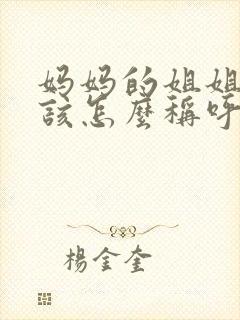 妈妈的姐姐
該怎麼稱呼
楊金奎